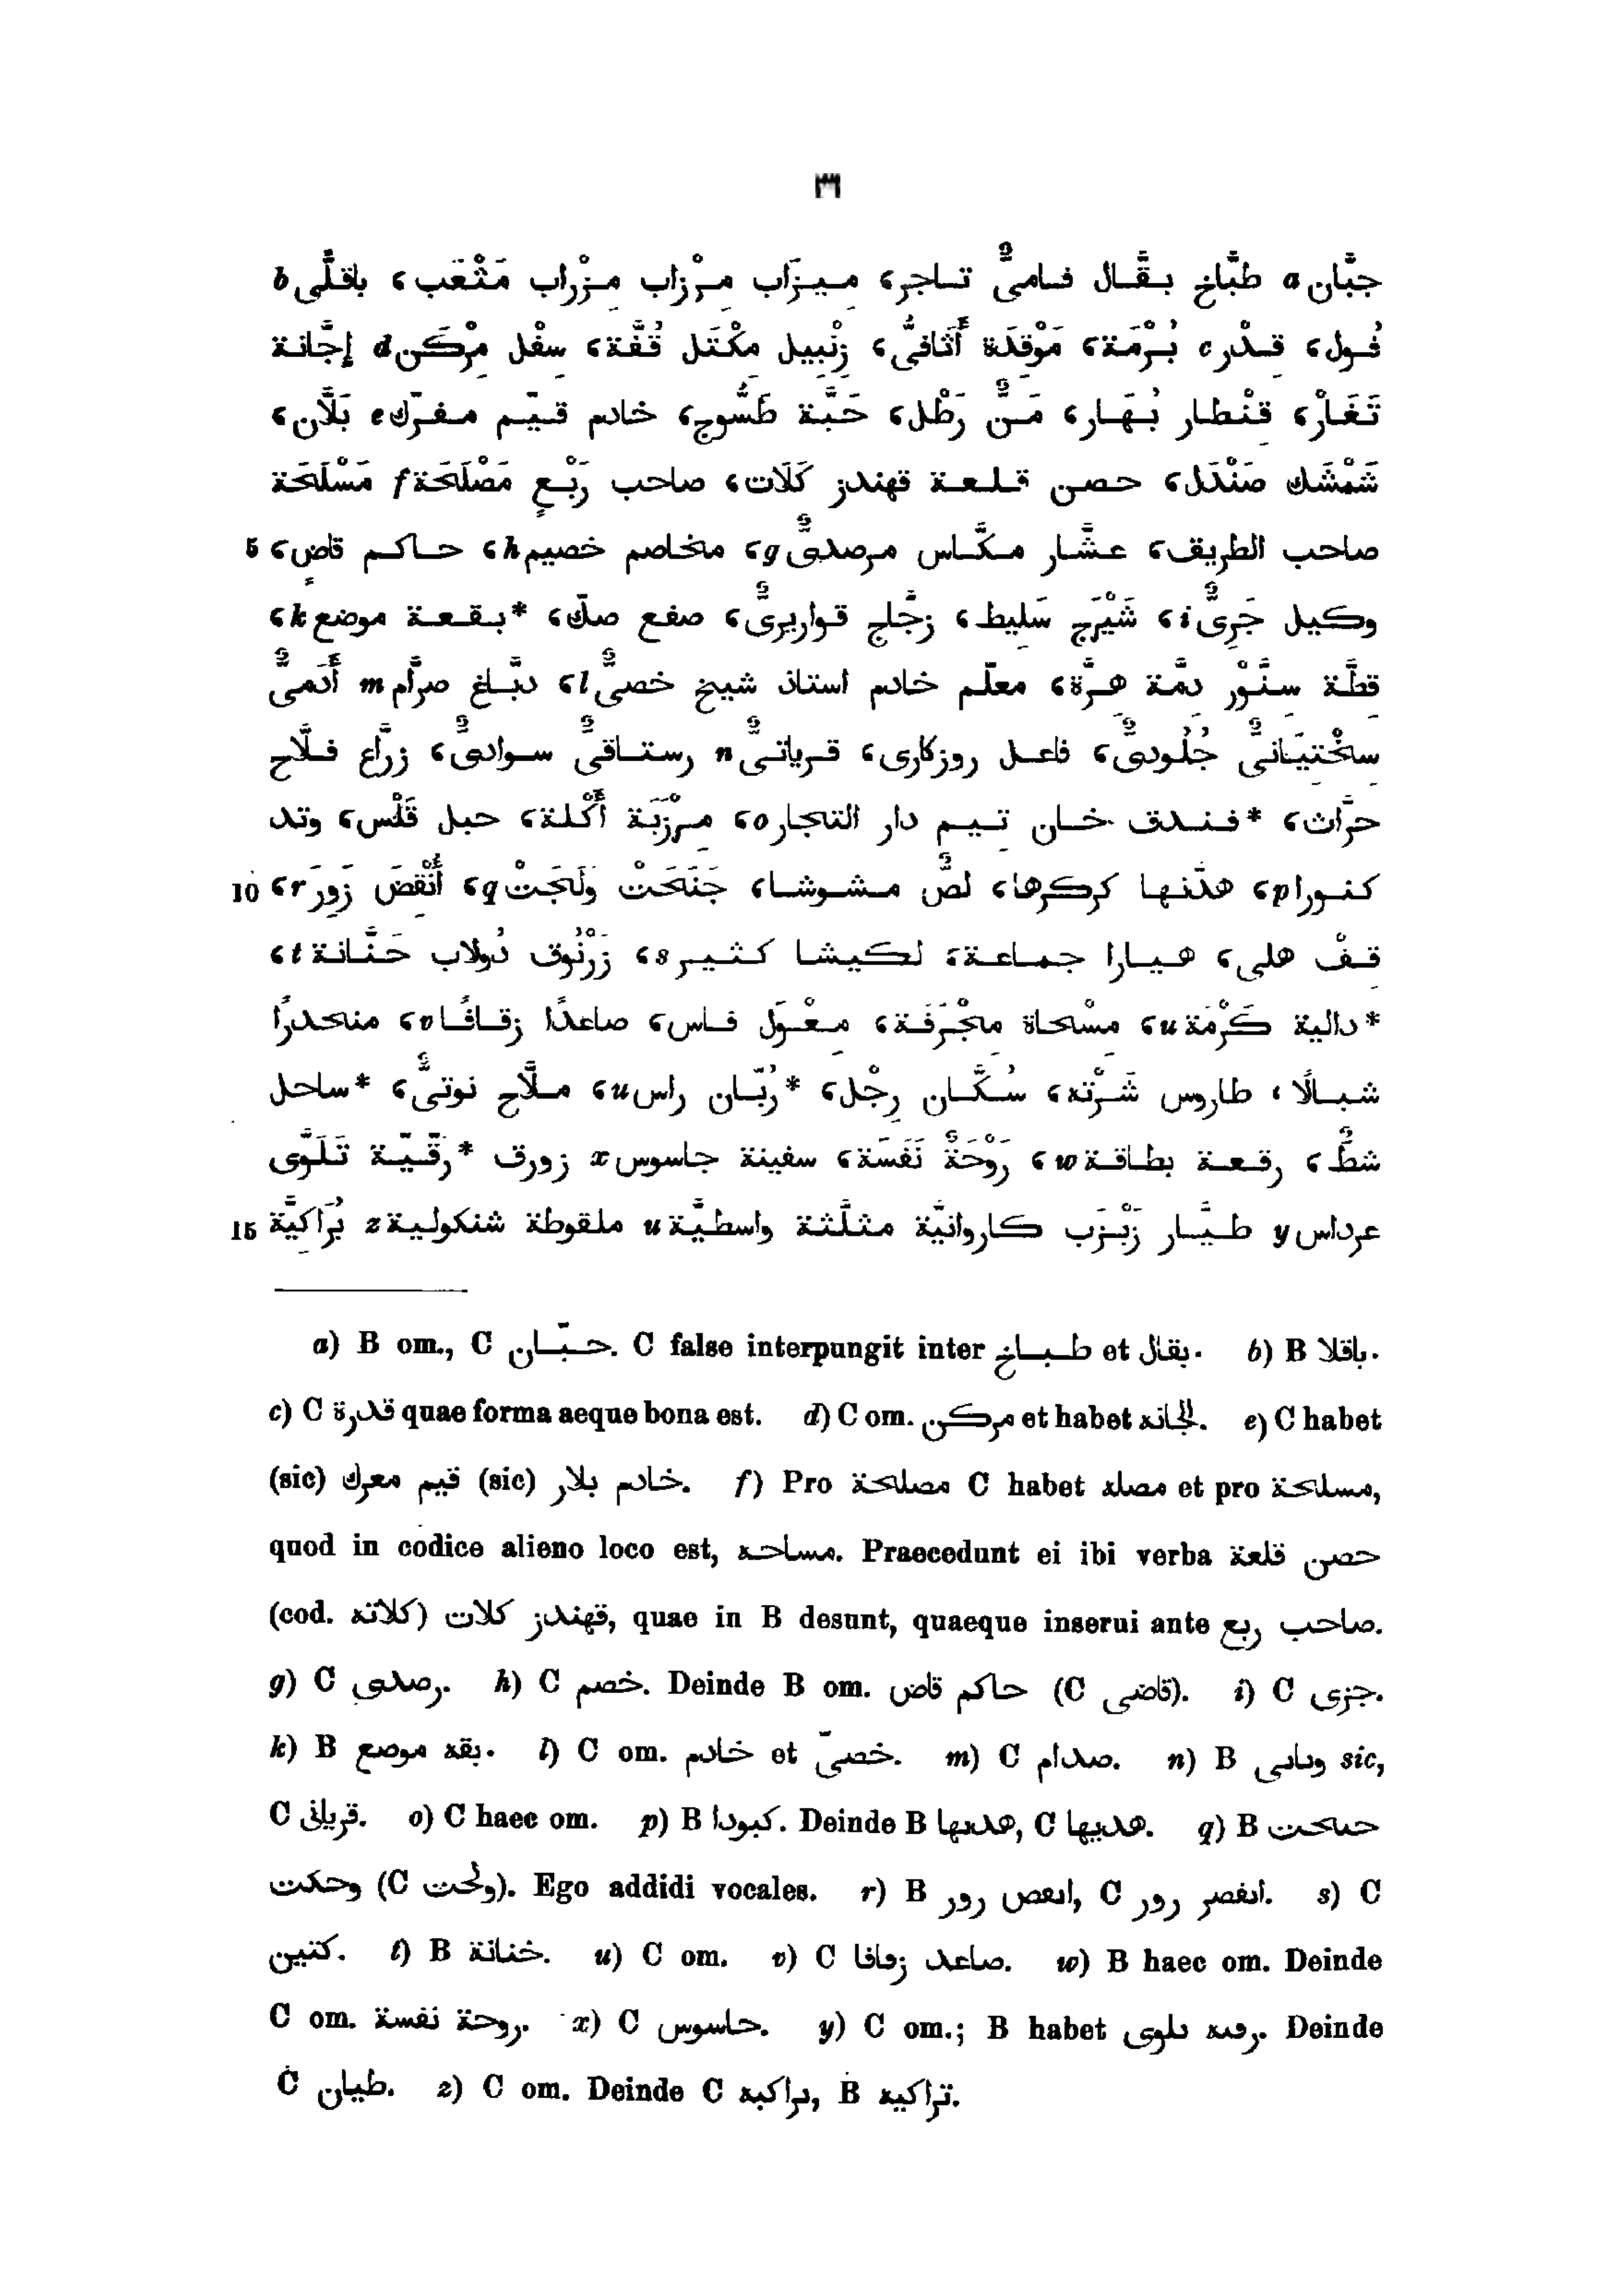 ٣١
جبَّان a طبَّاخ بقَّال فامىٌّ تاجر، ميزَاب مِرْزاب مِزْراب مَثْعَب، باقلَّى b
فُول، قِدْر c بُرْمَة، مَوْقدَة أَثافىُّ، زِنْبيل مِكْتَل قُفَّة، سفْل مِرْكَن d إجَّانة
تَغَارْ، قنْطار بُهَار، مَنٌّ رَطْل، حَبَّة طَسُّوج، خادم قيّم مفرّك e بَلَّان،
شَمْشَك صَنْدَل، حصن قلعة قهندز كَلَات، صاحب رَبْعٍ مَصْلَحَة f مَسْلَحَة
صاحب الطريق، عشَّار مكَّاس مرصدىٌّ g، مخاصم خصيم h، حاكم قاضٍ، 5
وكيل جَرِىٌّ i، شَيْرَج سَليط، زجَّاج قواريرىٌّ، صفع صكّ، *بقعة موضع k،
قطَّة سِنَّوْر دِمَّة هِرَّة، معلّم خادم استاذ شيخ خصىٌّ l، دبَّاغ صرَّام m أَدَمىٌّ
سِخْتيَانىٌّ جُلُودىٌّ، فاعل روزكارى، قرياتىٌّ n رستاقىٌّ سوادىٌّ، زرَّاع فلَّاح
حرَّاث، *فندق خان تيم دار التجار o، مِرْزَبَة أَكْلة، حبل قَلْس، وتد
كنورا p، هدّنها كركرها، لصٌّ مشوشا، جَنَحَتْ وَلَجَتْ q، أَنْقِضَ زَوِرَ r، 10
قِفْ هلى، هيارا جماعة، لكيشا كثير s، زَرْنُوق دُولاب حَنَّانة t،
*دالية كَرْمَة u، مِسْحاة مِجْرَفَة، مِعْوَل فاس، صاعدًا زقافًا v، منحدرًا
شبالًا، طاروس شَرْته، سُكَّان رِجْل، *رُبّان راس u، ملَّاح نوتىٌّ، *ساحل
شطٌّ، رقعة بطاقة w، رَوْحَةٌ نَفَسَة، سفينة جاسوس x زورق *رقّيّة تَلَوَّى
عرداس y طيَّار زَبْزَب كاروانيَّة مثلَّثة واسطيَّة u ملقوطة شنكولية z بُرَاكيَّة 15
a) B om., C حبّان. C false interpungit inter طباخ et بقال. b) B باقلا.
c) C قدرة quae forma aeque bona est. d) C om. مركن et habet لجانه. e) C habet
(sic) خادم بلار (sic) قيم معرك. f) Pro مصلحة C habet مصله et pro مسلحة,
quod in codice alieno loco est, مساحه. Praecedunt ei ibi verba حصن قلعة
(cod. كلاته) قهندز كلات, quae in B desunt, quaeque inserui ante صاحب ربع.
g) C رصدى. h) C خصم. Deinde B om. حاكم قاض (C قاضى). i) C جزى.
k) B بقه موضع. l) C om. خادم et خصىّ. m) C صدام. n) B وىاىى sic,
C قريانى. o) C haec om. p) B كبودا. Deinde B هدىها, C هديها. q) B حىحت
وحكت (C ولجت). Ego addidi vocales. r) B اىعص رور, C انفصر رور. s) C
كتين. t) B خنانة. u) C om. v) C صاعد زفافا. w) B haec om. Deinde
C om. روحة نفسة. x) C حاسوس. y) C om.; B habet رفىه ىلوى. Deinde
C طيان. z) C om. Deinde C ىراكيه, B تراكيه.